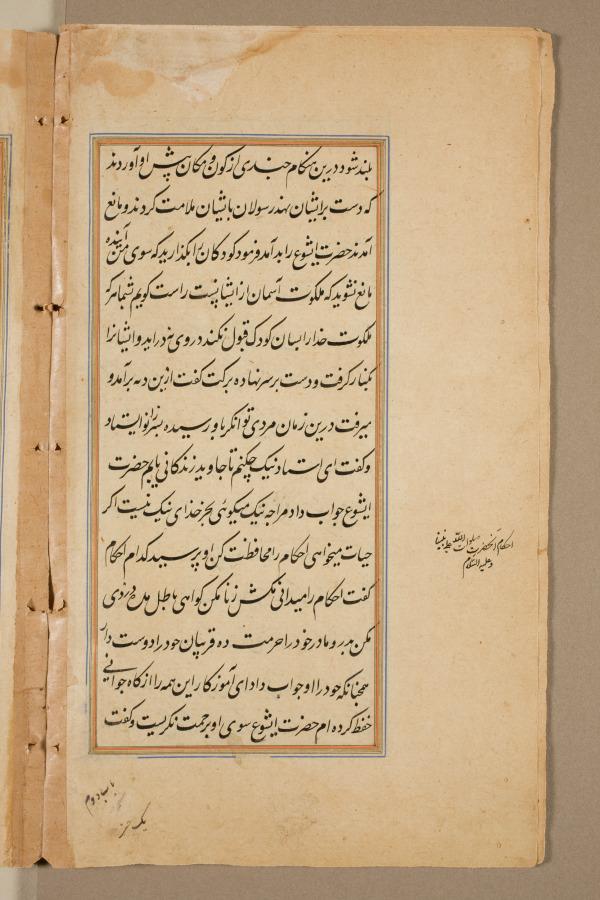 بلند شود درین هنکام چندی از کودکان پیش او آوردند
که دست بر ایشان نهد رسولان با ایشان ملامت کردند و مانع
آمدند حضرت ایشوع را بد آمد فرمود کودکان را بکذارید که سوی من آینده
مانع نشوید که ملکوت آسمان از ایشانست راست کویم شما هر که
ملکوت خدا را بسان کودک قبول نکند در وی نه دراید و ایشانرا
بکنار کرفت و دست بر سر نهاده برکت کفت ازین ده برآمد و
میرفت درین زمان مردی توانکر باو رسیده بسر زانو ایستاد
و کفت ای استاد نیک چکنم تا جاوید زندکانی یابم حضرت
ایشوع جواب داد مرا چه نیک میکوئی بجز خدای نیک نیست اکر
حیات میخواهی احکام را محافظت کن او پرسید کدام احکام
کفت احکام را میدانی مکش زنا مکن کواهی باطل مده دزدی
مکن پدر و مادر خود را حرمت ده قریبان خود را دوست دار
همچنانکه خود را او جواب داد ای آموزکار این همه را از کاه جوانی
حفظ کرده ام حضرت ایشوع سوی او برحمت نکریست و کفت
احکام آنحضرت صلوات الله علی نبینا
و علیه السلام
باب دوم
یک